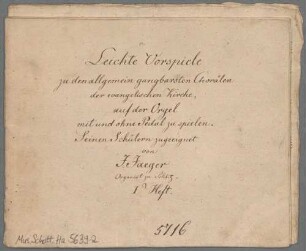 Leichte Vorspiele
zu den allgemein gangbarsten Chorälen
der evangelischen Kirche,
auf der Orgel
mit und ohne Pedal zu spielen.
Seinen Schülern zugeeignet
von
F. Jaeger
Organist zu
1s Heft.
5716
Mus. Schott. Ha. 5639-2